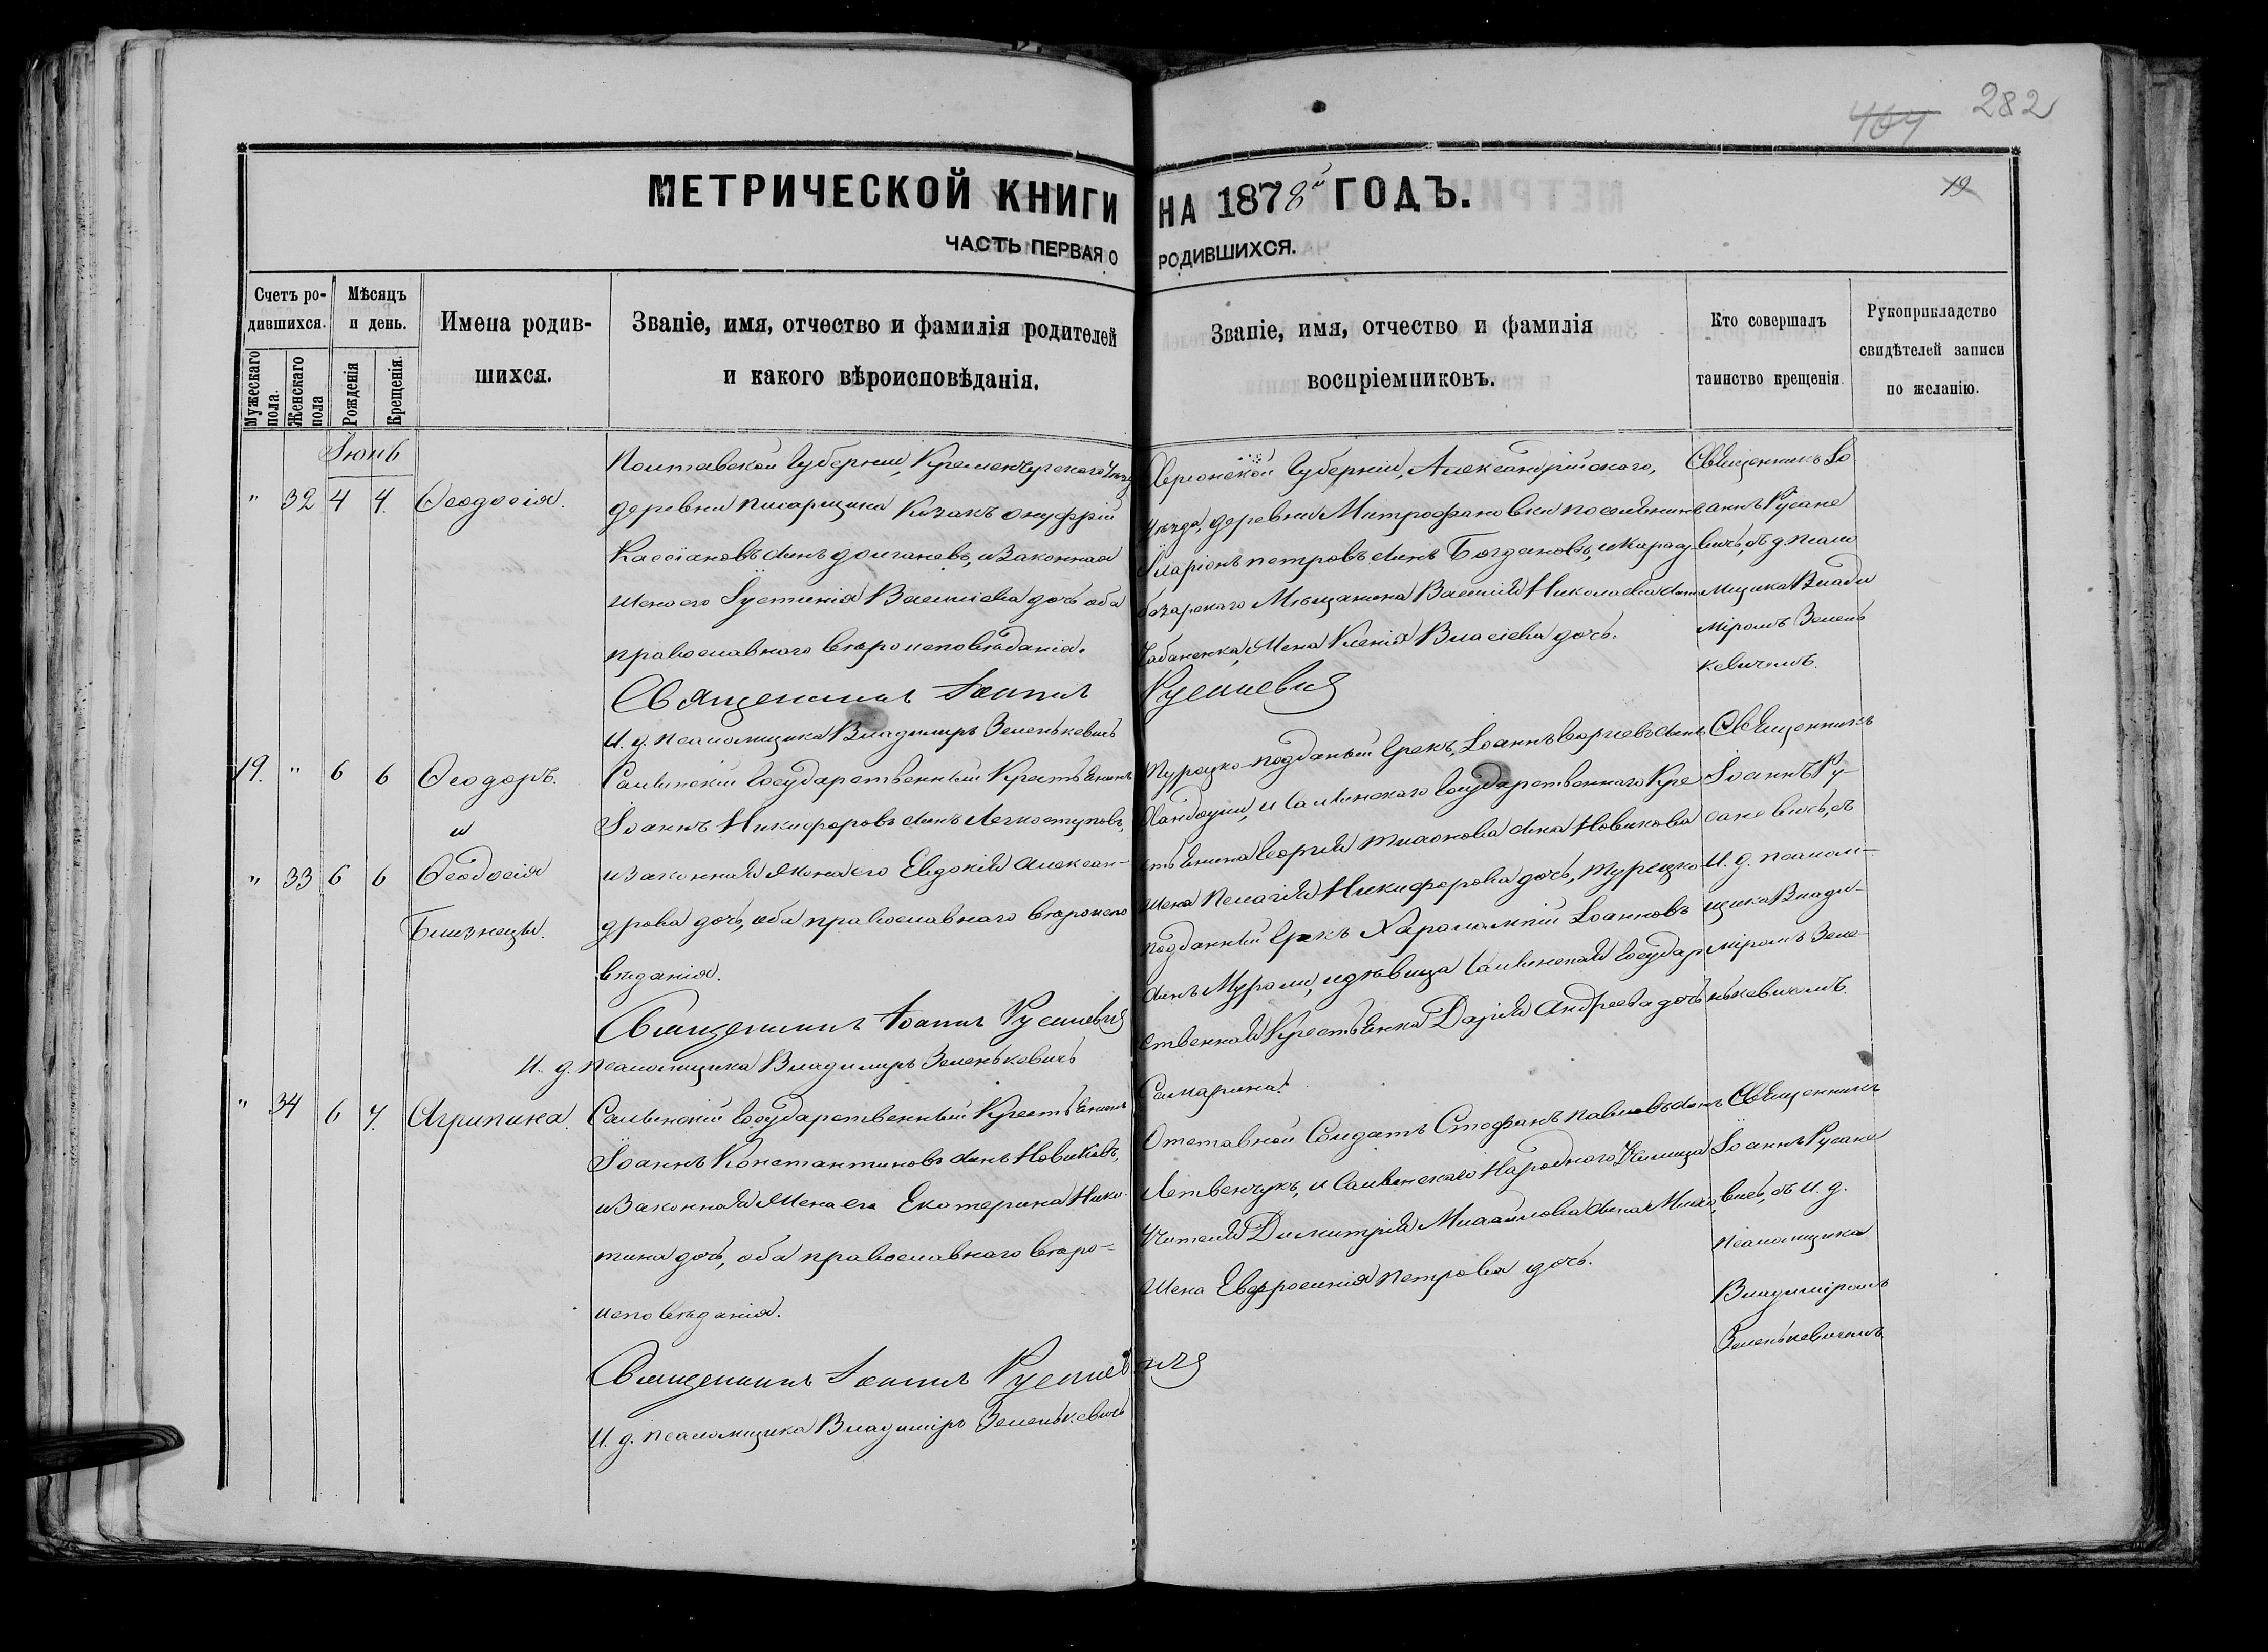 282
464
19
МЕТРИЧЕСКОЙ КНИГИ НА 1878й ГОДЪ.
ЧАСТЬ ПЕРВАЯ О РОДИВШИХСЯ.
Счетъ родившихся.
Мужескаго пола.
Женскаго пола
Мѣсяцъ и день.
Рожденія
Крещенія.
Имена родившихся.
Званіе, имя, отчество и фамилія родителей
и какого вѣроисповѣданія.
Званіе, имя, отчество и фамилія
воспріемниковъ.
Кто совершалъ
таинство крещенія.
Рукоприкладство
свидѣтелей записи
по желанію.
Іюнь
" 32 4 4. Ѳеодосія.
Полтавской Губерніи, Кременчугскаго Уѣзд
деревни Писарщина Козакъ Онуфрій
Кассіановъ сынъ Долгановъ, и Законная
Жена его Іустинія Василіева дочь оба
православнаго вѣроисповѣданія.
Священникъ Іоаннъ Русаневич
И. д. псаломщика Владимиръ Зеленькевичъ
Херсонской Губерніи, Александрійскаго,
Уѣзда, деревни Митрофановки поселянинъ
Иларіонъ Петровъ сынъ Богдановъ, и Кара
базарскаго Мѣщанина Василія Николаева сына
Чабаненка, Жена Ксенія Власіева дочь.
Священникъ Іо
аннъ Русане
вичъ, съ д. псало
мщика Влади
міромъ Зелень
кевичемъ.
19. " 6 6 Ѳеодоръ.
и
" 33 6 6 Ѳеодосія
Близнецы.
Салынскій Государственный Крестьянинъ
Іоаннъ Никифоровъ сынъ Легкоступовъ,
и законная Жена его Евдокія Алексан-
дрова дочь, оба православнаго вѣроиспо
вѣданія.
Священникъ Іоаннъ Русаневич
И. д. Псаломщика Владимиръ Зеленькевичъ
Турецко-подданый Грекъ, Іоаннъ Георгіевъ сынъ
и Салынскаго Государственнаго Кре
стьянина Георгія сына Новикова
Жена Пелагія Никифорова дочь, Турецко-
подданный Грекъ Харалампій Іоанновъ
сынъ и дѣвица Салынская Государ
ственная Крестьянка Дарія Андреева дочь
Самарина.
Священникъ
Іоаннъ Ру-
саневичъ, съ
И. д. псалом-
щика Влади-
міромъ Зеле-
нькевичемъ.
" 34 6 7. Агрипина.
Салынскій Государственный Крестьянинъ
Іоаннъ Константиновъ сынъ Новиковъ,
и Законная Жена его Екатерина Ники-
тина дочь, оба православнаго вѣро-
исповѣданія.
Священникъ Іоаннъ Русаневич
И. д. псаломщика Владиміръ Зеленькевичъ
Отставной Солдатъ Стефанъ Павловъ сынъ
и Салынскаго Народнаго Училища
Учителя Димитрія Михайлова сына
Жена Евфросинія Петрова дочь.
Священникъ
Іоаннъ Русане
вичъ, съ И. д.
псаломщика
Владиміромъ
Зеленькевичемъ